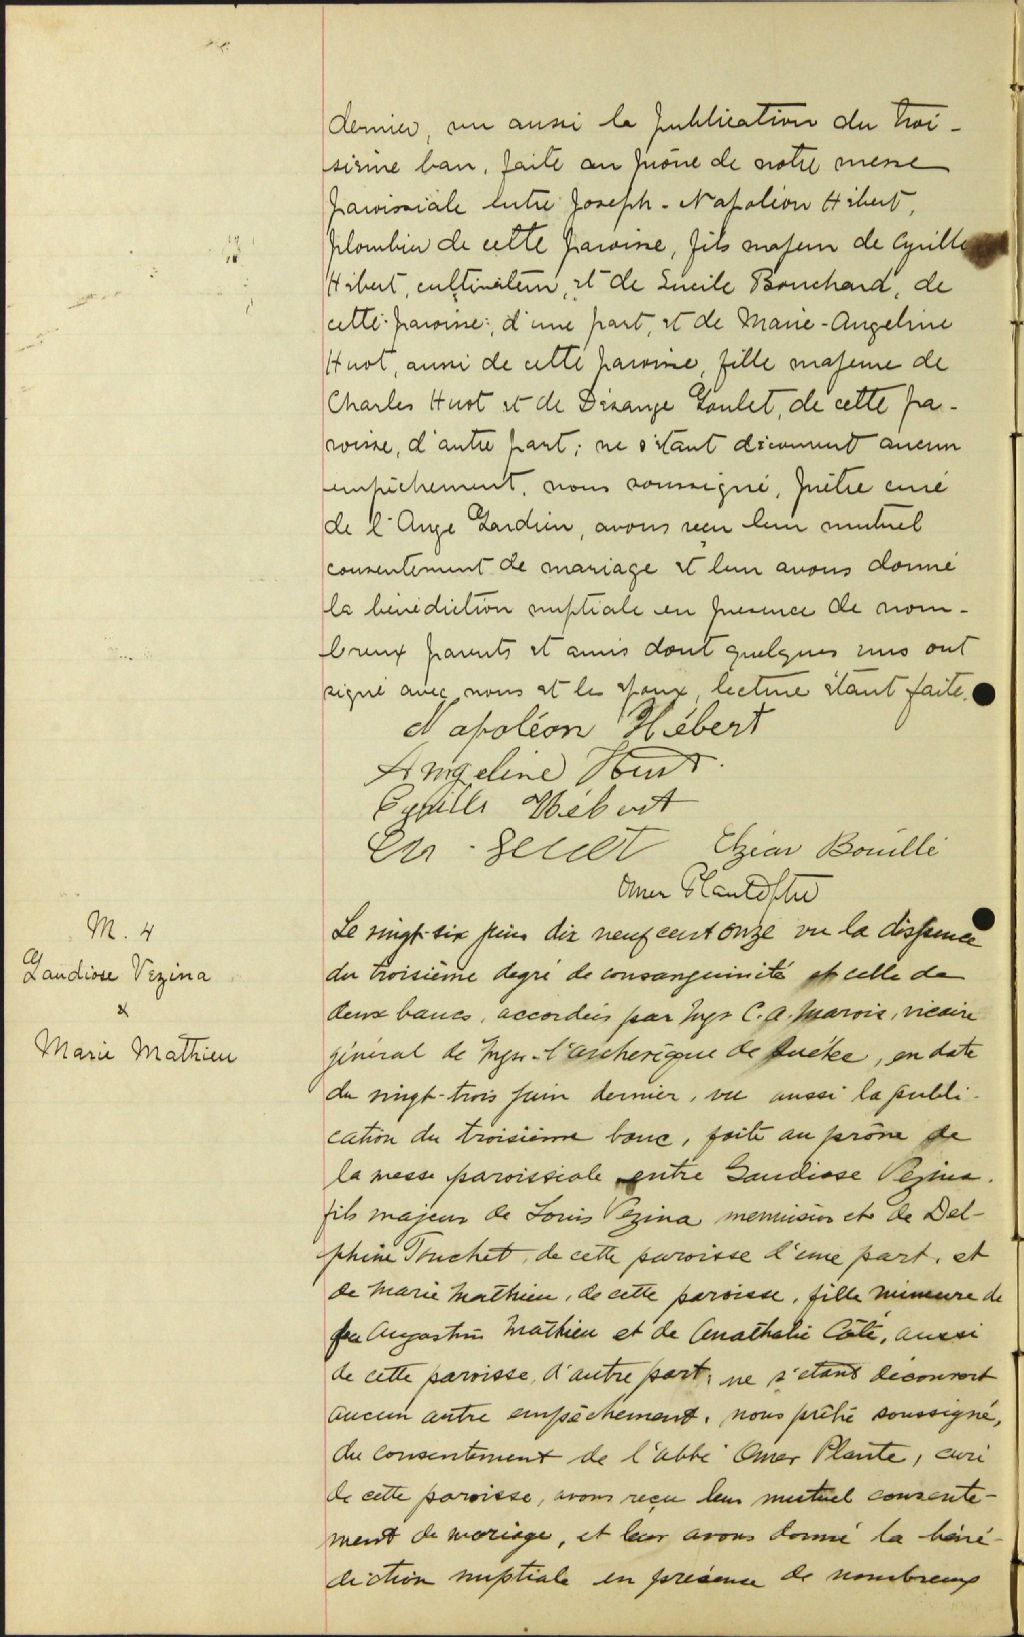 dernier, vu aussi la publication du troi-
sième ban, faite au prône de notre messe
paroissiale entre Joseph-Napoléon Hébert,
plombier de cette paroisse, fils majeur de Cyrille
Hébert, cultivateur, et de Lucile Bouchard, de
cette paroisse, d'une part, et de Marie-Angeline
Huot, aussi de cette paroisse, fille majeure de
Charles Huot et de Désange Goulet, de cette pa-
roisse, d'autre part; ne s'étant découvert aucun
empêchement, nous soussigné, prêtre curé
de l'Ange Gardien, avons reçu leur mutuel
consentement de mariage et leur avons donné
la bénédiction nuptiale en présence de nom-
breux parents et amis dont quelques uns ont
signé avec nous et les époux, lecture étant faite.
Napoléon Hébert
Angeline Huot
Cyrille Hébert
Elzéar Bouillé
Omer Plante Ptre
M. 4
Gaudiose Vezina
&
Marie Mathieu
Le vingt-six juin dix neuf cent onze vu la dispence
du troisième degré de consanguinité et celle de
deux bancs, accordées par Mgr C. A. Marois, vicaire
général de Mgr l'archevêque de Québec, en date
du vingt-trois juin dernier, vu aussi la publi-
cation du troisième banc, faite au prône de
la messe paroissiale entre Gaudiose Vezina,
fils majeur de Louis Vézina menuisier et de Del-
phine Touchet, de cette paroisse d'une part, et
de Marie Mathieu, de cette paroisse, fille mineure de
feu Augustin Mathieu et de Anathalie Côté, aussi
de cette paroisse, d'autre part, ne s'étant découvert
aucun autre empêchement, nous prêtre soussigné,
du consentement de l'abbé Omer Plante, curé
de cette paroisse, avons reçu leur mutuel consente-
ment de mariage, et leur avons donné la béné-
diction nuptiale en présence de nombreux